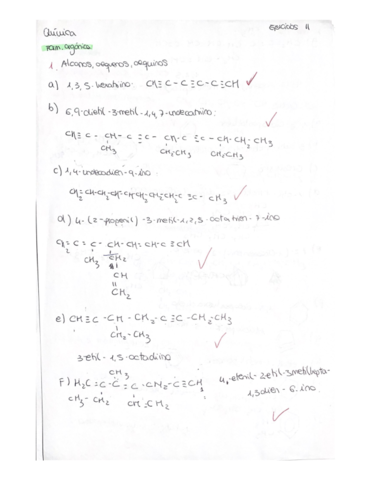 Química
EJERCICIOS 4
Form. orgánica
1. Alcanos, alquenos, alquinos
a) 1,3,5-hexatriino: CH≡C-C≡C-C≡CH
b) 6,9-dietil-3metil-1,4,7-undecatriino:
CH≡C-CH-C≡C-CH-C≡C-CH-CH2CH3
CH3 CH2CH3 CH2CH3
c) 1,4-undecadien-9-ino
d) 4-(2-propenil)-3-metil-1,2,5-octatrien-7-ino
CH2=C=C-CH-CH=CH-C≡CH
CH3 CH2
CH
CH2
e) CH≡C-CH-CH2-C≡C-CH2-CH3
CH2-CH3
3-etil-1,5-octadiino
CH3
F) H2C=C-C=C-CH2-C≡CH
CH3-CH2 CH=CH2
4-etenil-2etil-3metilhepta-
1,3dien-6-ino